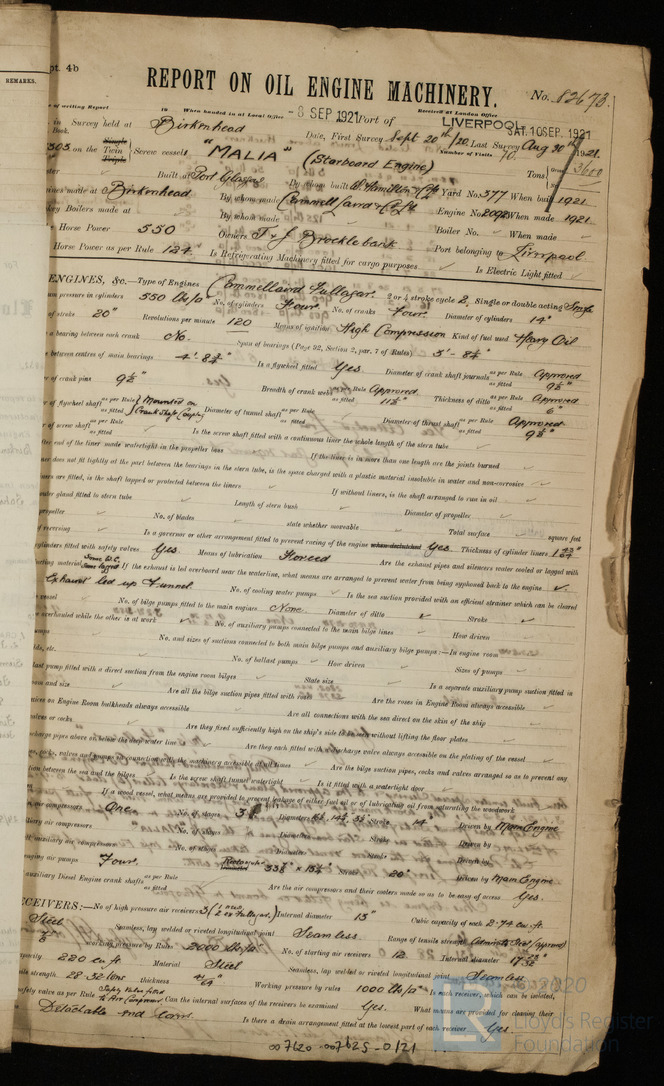 pt. 4b
REMARKS.
REPORT ON OIL ENGINE MACHINERY.
No. 82673.
of writing Report
When handed in at Local Office
-8 SEP 1921
Port of LIVERPOOL
Received at London Office
SAT. 10 SEP. 1921
in Survey held at Birkenhead
Date, First Survey Sept 20th/20 Last Survey Aug 30th 1921.
Book.
Number of Visits 70.
on the Single Twin Triple Screw vessel "MALIA" (Starboard Engine)
Tons
Built at Port Glasgow By whom built W. Hamilton & Co Ld Yard No. 377 When built 1921
ines made at Birkenhead By whom made Cammell Laird & Co Ld Engine No. 2092 When made 1921.
key Boilers made at By whom made Boiler No. When made
Horse Power 550 Owners T. & J. Brocklebank Port belonging to Liverpool
Horse Power as per Rule 124 Is Refrigerating Machinery fitted for cargo purposes Is Electric Light fitted
ENGINES, &c.—Type of Engines Cammellaird Fullagar. 2 or 4 stroke cycle 2. Single or double acting Single
um pressure in cylinders 550 lbs/□" No. of cylinders Four. No. of cranks Four. Diameter of cylinders 14"
of stroke 20" Revolutions per minute 120 Means of ignition High Compression Kind of fuel used Heavy Oil
a bearing between each crank No. Span of bearings (Page 92, Section 2, par. 7 of Rules) 3'-8¾"
between centres of main bearings Is a flywheel fitted Yes Diameter of crank shaft journals as per Rule Approved as fitted 9½"
of crank pins 9½" Breadth of crank webs as per Rule Approved as fitted 11½" Thickness of ditto as per Rule Approved as fitted 6"
of flywheel shaft as per Rule as fitted Mounted on Crank Shaft Coupling Diameter of tunnel shaft as per Rule as fitted Diameter of thrust shaft as per Rule Approved as fitted 9½"
of screw shaft as per Rule as fitted Is the screw shaft fitted with a continuous liner the whole length of the stern tube
the end of the liner made watertight in the propeller boss If the liner is in more than one length are the joints burned
does not fit tightly at the part between the bearings in the stern tube, is the space charged with a plastic material insoluble in water and non-corrosive
ners are fitted, is the shaft lapped or protected between the liners If without liners, is the shaft arranged to run in oil
outer gland fitted to stern tube Length of stern bush Diameter of propeller
propeller No. of blades state whether moveable Total surface square feet
of reversing Is a governor or other arrangement fitted to prevent racing of the engine when declutched Yes. Thickness of cylinder liners
cylinders fitted with safety valves Yes. Means of lubrication Forced Are the exhaust pipes and silencers water cooled or lagged with
ducting material If the exhaust is led overboard near the waterline, what means are arranged to prevent water from being syphoned back to the engine
Exhaust led up Funnel No. of cooling water pumps Is the sea suction provided with an efficient strainer which can be cleared
vessel No. of bilge pumps fitted to the main engines None. Diameter of ditto Stroke
overhauled while the other is at work No. of auxiliary pumps connected to the main bilge lines How driven
umps No. and sizes of suctions connected to both main bilge pumps and auxiliary bilge pumps:—In engine room
lds, etc. No. of ballast pumps How driven Sizes of pumps
last pump fitted with a direct suction from the engine room bilges State size Is a separate auxiliary pump suction fitted in
oom and size Are all the bilge suction pipes fitted with roses Are the roses in Engine Room always accessible
uices on Engine Room bulkheads always accessible Are all connections with the sea direct on the skin of the ship
valves or cocks Are they fixed sufficiently high on the ship's side to be seen without lifting the floor plates
charge pipes above or below the deep water line Are they each fitted with a discharge valve always accessible on the plating of the vessel
cocks, valves and pumps in connection with the machinery accessible at all times Are the bilge suction pipes, cocks and valves arranged so as to prevent any
tion between the sea and the bilges Is the screw shaft tunnel watertight Is it fitted with a watertight door
If a wood vessel, what means are provided to prevent leakage of either fuel oil or of lubrication oil from saturating the woodwork
in air compressors One No. of stages 3 Diameters Stroke Driven by Main Engine
iliary air compressors No. of stages Diameters Stroke Driven by
ll auxiliary air compressors No. of stages Diameters Stroke Driven by
nging air pumps Four. Stroke 20" Driven by Main Engine
auxiliary Diesel Engine crank shafts as per Rule as fitted Are the air compressors and their coolers made so as to be easy of access Yes.
CEIVERS:—No. of high pressure air receivers 3 Internal diameter 15" Cubic capacity of each 2·74 cu. ft.
Steel Seamless, lap welded or riveted longitudinal joint Seamless Range of tensile strength
working pressure by Rules 2000 lbs/□" No. of starting air receivers 12 Internal diameter
apacity 220 cu ft Material Steel Seamless, lap welded or riveted longitudinal joint Seamless
sile strength 28·32 tons thickness Working pressure by rules 1000 lbs/□" Is each receiver, which can be isolated,
safety valve as per Rule Safety Valve fitted to Air Compressor Can the internal surfaces of the receivers be examined Yes. What means are provided for cleaning their
Detachable end covers. Is there a drain arrangement fitted at the lowest part of each receiver Yes.
007620-007625-0121
© 2020
Lloyd's Register
Foundation